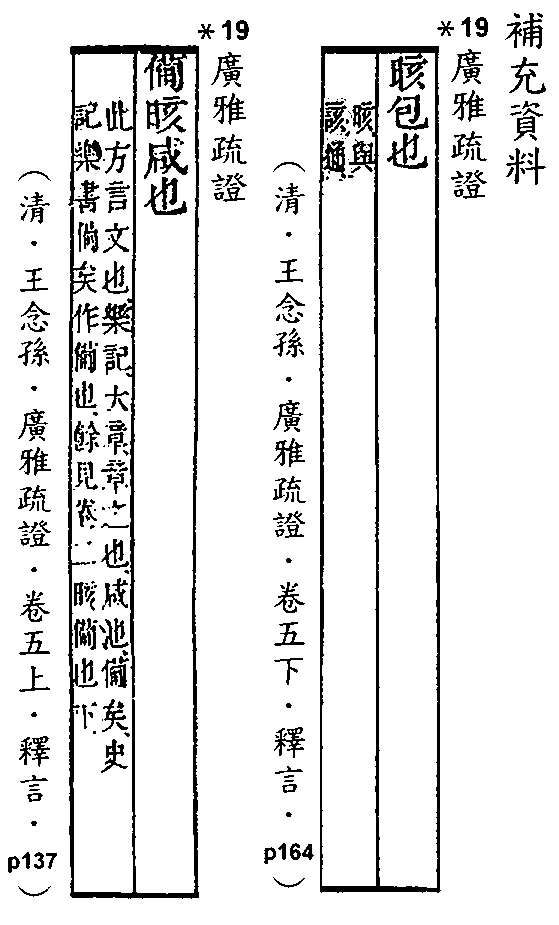 補充資料
*19 廣雅疏證
晐包也
晐與
該通
(清·王念孫·廣雅疏證·卷五下·釋言·p164)
*19 廣雅疏證
僃晐咸也
此方言文也樂記大章章之也咸池僃矣史
記樂書僃矣作僃也餘見卷二晐僃也下
(清·王念孫·廣雅疏證·卷五上·釋言·p137)